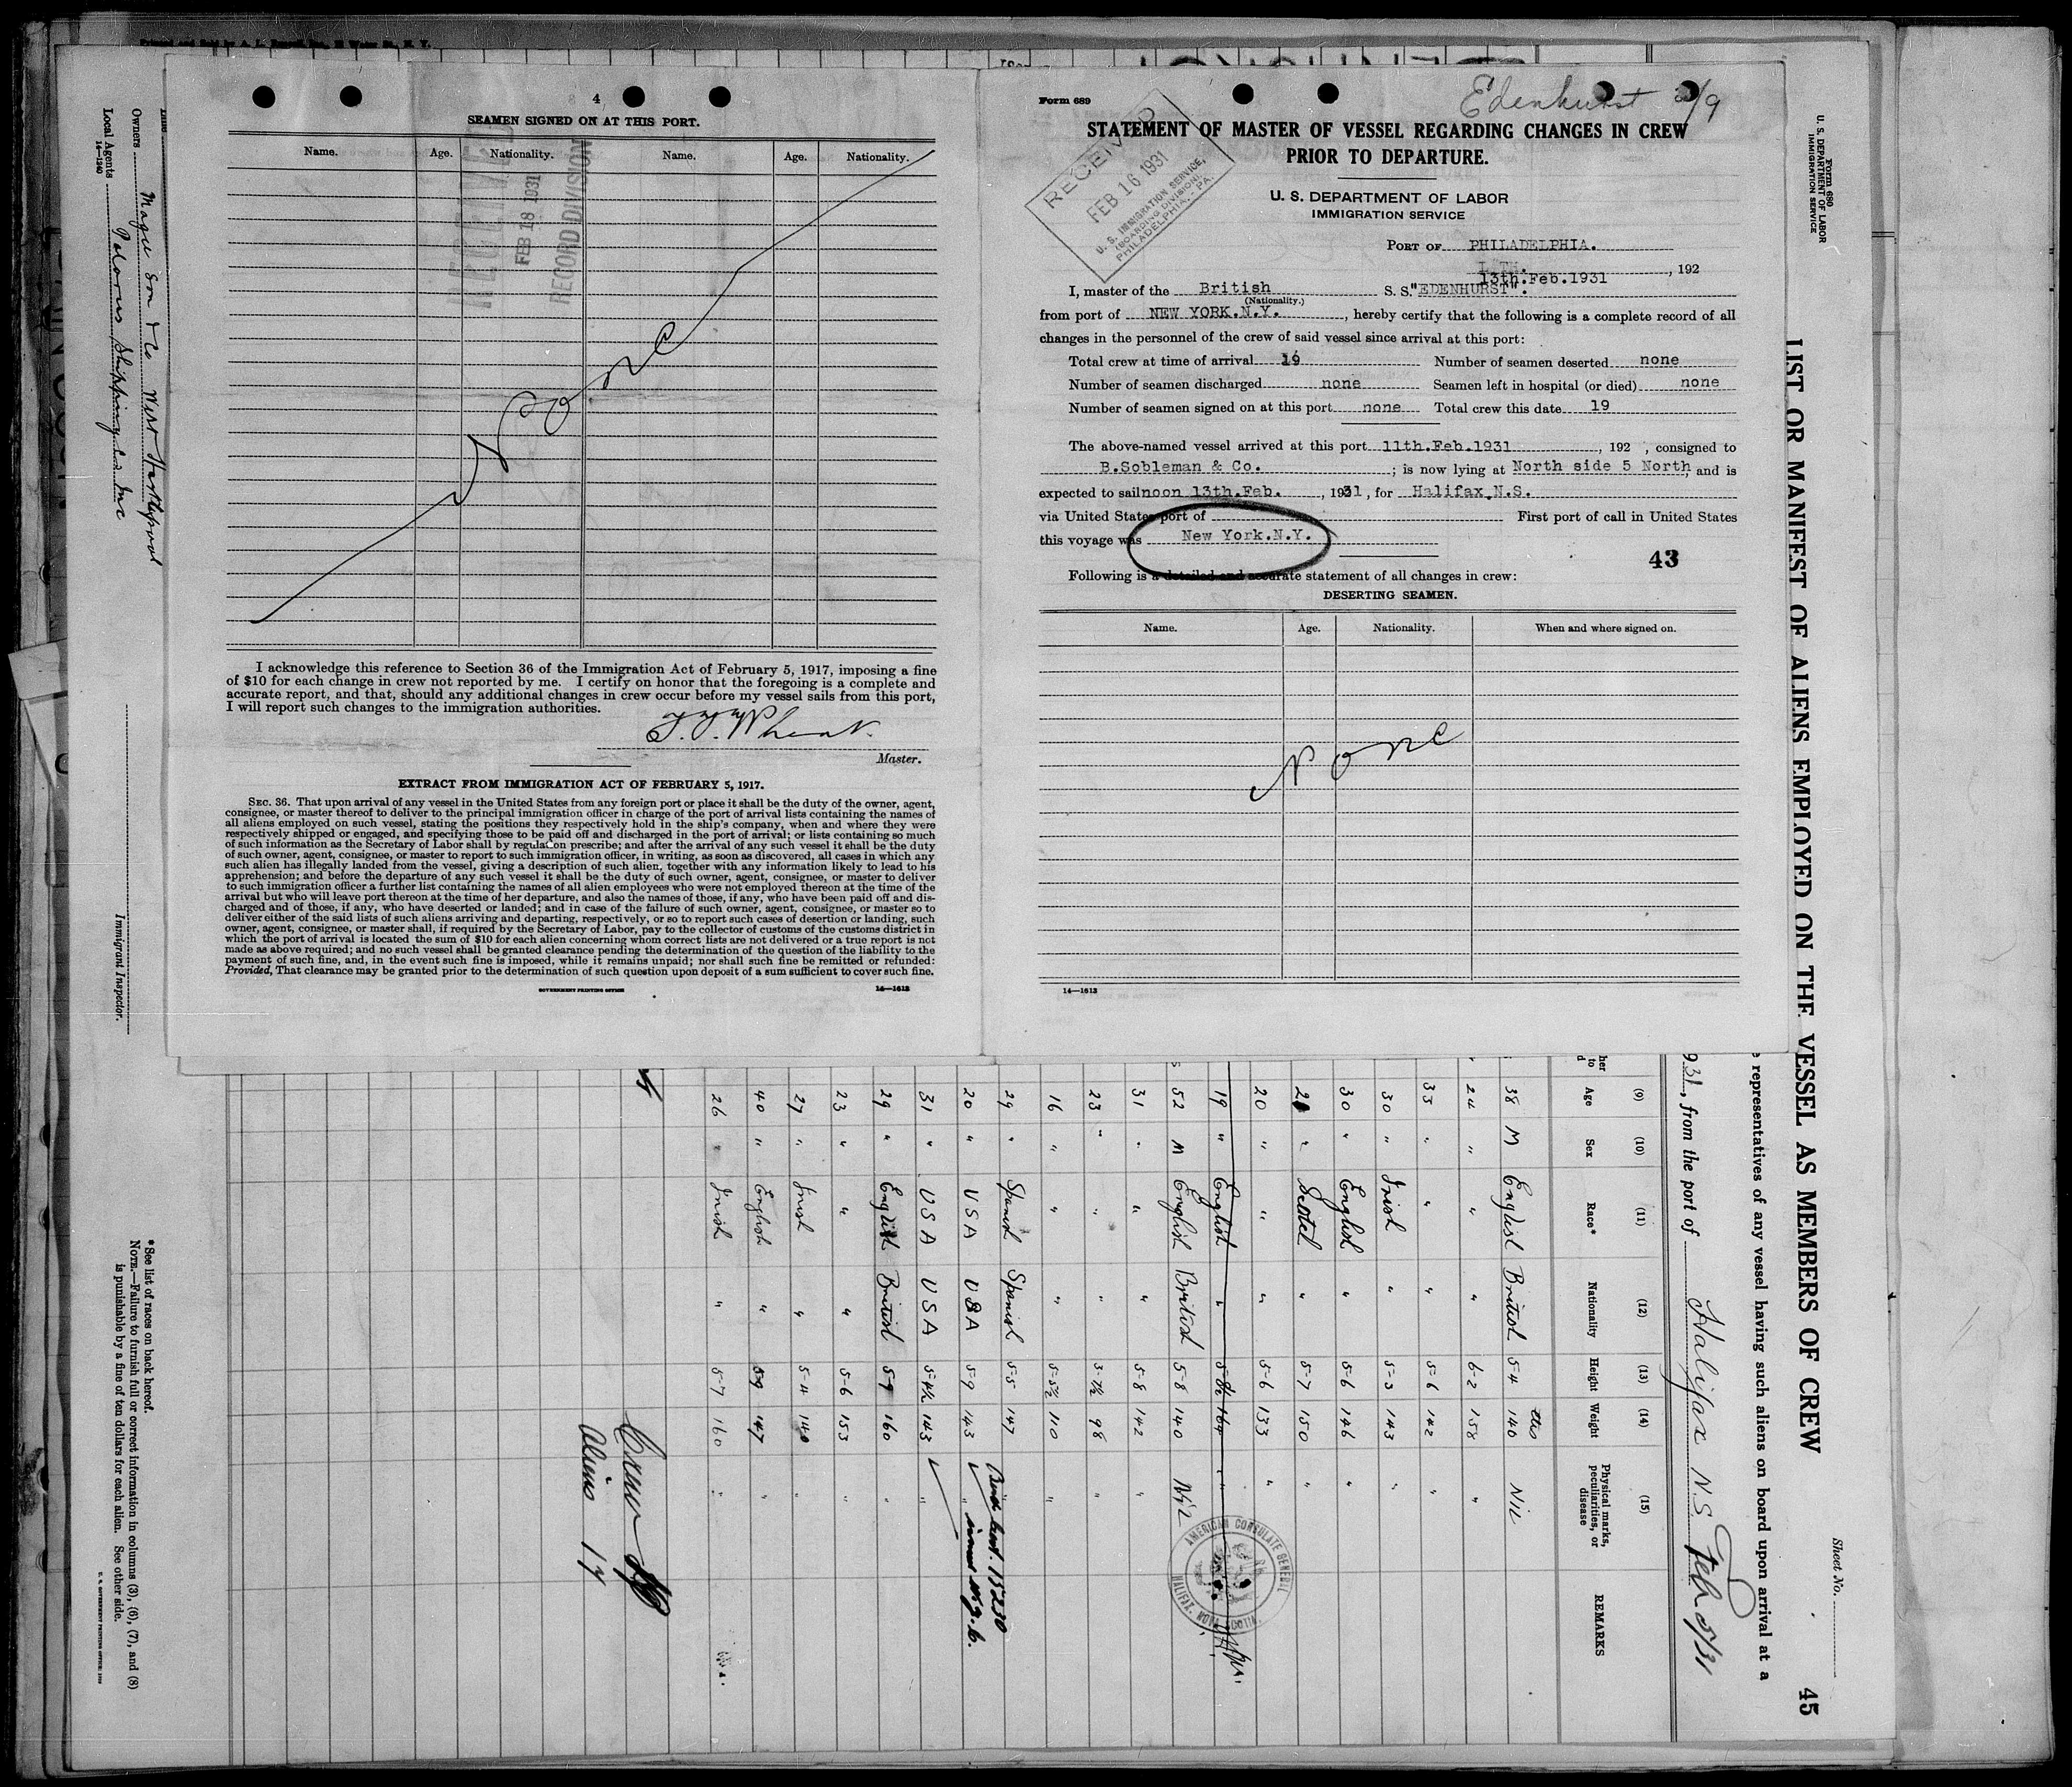 4
SEAMEN SIGNED ON AT THIS PORT.
Name. Age. Nationality. Name. Age. Nationality.
RECEIVED
FEB 18 1931
RECORD DIVISION
None
I acknowledge this reference to Section 36 of the Immigration Act of February 5, 1917, imposing a fine
of $10 for each change in crew not reported by me. I certify on honor that the foregoing is a complete and
accurate report, and that, should any additional changes in crew occur before my vessel sails from this port,
I will report such changes to the immigration authorities.
Master.
EXTRACT FROM IMMIGRATION ACT OF FEBRUARY 5, 1917.
SEC. 36. That upon arrival of any vessel in the United States from any foreign port or place it shall be the duty of the owner, agent,
consignee, or master thereof to deliver to the principal immigration officer in charge of the port of arrival lists containing the names of
all aliens employed on such vessel, stating the positions they respectively hold in the ship's company, when and where they were
respectively shipped or engaged, and specifying those to be paid off and discharged in the port of arrival; or lists containing so much
of such information as the Secretary of Labor shall by regulation prescribe; and after the arrival of any such vessel it shall be the duty
of such owner, agent, consignee, or master to report to such immigration officer, in writing, as soon as discovered, all cases in which any
such alien has illegally landed from the vessel, giving a description of such alien, together with any information likely to lead to his
apprehension; and before the departure of any such vessel it shall be the duty of such owner, agent, consignee, or master to deliver
to such immigration officer a further list containing the names of all alien employees who were not employed thereon at the time of the
arrival but who will leave port thereon at the time of her departure, and also the names of those, if any, who have been paid off and dis-
charged and of those, if any, who have deserted or landed; and in case of the failure of such owner, agent, consignee, or master so to
deliver either of the said lists of such aliens arriving and departing, respectively, or so to report such cases of desertion or landing, such
owner, agent, consignee, or master shall, if required by the Secretary of Labor, pay to the collector of customs of the customs district in
which the port of arrival is located the sum of $10 for each alien concerning whom correct lists are not delivered or a true report is not
made as above required; and no such vessel shall be granted clearance pending the determination of the question of the liability to the
payment of such fine, and, in the event such fine is imposed, while it remains unpaid; nor shall such fine be remitted or refunded:
Provided, That clearance may be granted prior to the determination of such question upon deposit of a sum sufficient to cover such fine.
GOVERNMENT PRINTING OFFICE 14—1613
Form 689
Edenhurst 2/9
STATEMENT OF MASTER OF VESSEL REGARDING CHANGES IN CREW
PRIOR TO DEPARTURE.
RECEIVED
FEB 16 1931
U. S. IMMIGRATION SERVICE,
(BOARDING DIVISION),
PHILADELPHIA, - PA.
U. S. DEPARTMENT OF LABOR
IMMIGRATION SERVICE
PORT OF PHILADELPHIA.
13th.Feb.1931, 192
I, master of the British S. S. "EDENHURST".
(Nationality.)
from port of NEW YORK.N.Y., hereby certify that the following is a complete record of all
changes in the personnel of the crew of said vessel since arrival at this port:
Total crew at time of arrival 19 Number of seamen deserted none
Number of seamen discharged none Seamen left in hospital (or died) none
Number of seamen signed on at this port none Total crew this date 19
The above-named vessel arrived at this port 11th.Feb.1931, 192 , consigned to
B.Sobleman & Co. ; is now lying at North side 5 North, and is
expected to sail noon 13th.Feb., 1931, for Halifax.N.S.
via United States port of First port of call in United States
this voyage was New York.N.Y.
43
Following is a detailed and accurate statement of all changes in crew:
DESERTING SEAMEN.
Name. Age. Nationality. When and where signed on.
None
14—1613
Form 680
U. S. DEPARTMENT OF LABOR
IMMIGRATION SERVICE
Sheet No.
45
LIST OR MANIFEST OF ALIENS EMPLOYED ON THE VESSEL AS MEMBERS OF CREW
representatives of any vessel having such aliens on board upon arrival at a
931, from the port of Halifax N.S. Feb 5/31
(9) (10) (11) (12) (13) (14) (15)
Age Sex Race* Nationality Height Weight Physical marks, peculiarities, or disease REMARKS
38 M English British 5-4 140 Nil
24 " " " 6-2 158 "
35 " " " 5-6 142 "
30 " Irish " 5-3 143 "
30 " English " 5-6 146 "
21 " Scotch " 5-7 150
20 " " " 5-6 133 "
19 " English " 5-8½ 164 "
52 M English British 5-8 140 Nil
AMERICAN CONSULATE GENERAL
HALIFAX, NOVA SCOTIA.
31 " " " 5-8 142 "
23 " " " 98 "
16 " " " 5-5½ 110 "
29 " Spanish Spanish 5-5 147
20 " USA USA 5-9 143 "
31 " USA USA 5-4½ 143 "
29 " English British 5-9 160 "
23 " " " 5-6 153 "
27 " Irish " 5-4 140 "
40 " English " 5-9 147 "
26 " Irish " 5-7 160 "
Crew
Aliens 17
*See list of races on back hereof.
NOTE.—Failure to furnish full or correct information in columns (3), (6), (7), and (8)
is punishable by a fine of ten dollars for each alien. See other side.
Immigrant Inspector.
Owners Magee Son & Co West Hartlepool
Local Agents Shipping Co Inc
14—1240